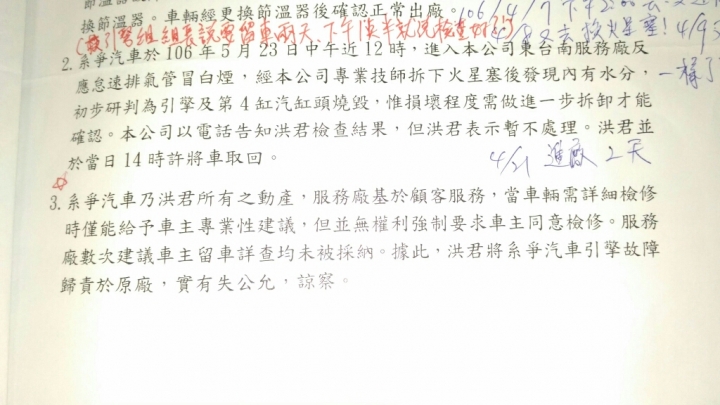 換節溫器。車輛經更換節溫器後確認正常出廠。106/4/7下午2:00
組長說需留車兩天、下午1點半就說檢查好了
4/8又去換火星塞!4/9又
2. 系爭汽車於 106 年 5 月 23 日中午近 12 時，進入本公司東台南服務廠反
一樣了
應怠速排氣管冒白煙，經本公司專業技師拆下火星塞後發現內有水分，
初步研判為引擎及第 4 缸汽缸頭燒毀，惟損壞程度需做進一步拆卸才能
確認。本公司以電話告知洪君檢查結果，但洪君表示暫不處理。洪君並
於當日 14 時許將車取回。
4/21 進廠 2天
3. 系爭汽車乃洪君所有之動產，服務廠基於顧客服務，當車輛需詳細檢修
時僅能給予車主專業性建議，但並無權利強制要求車主同意檢修。服務
廠數次建議車主留車詳查均未被採納。據此，洪君將系爭汽車引擎故障
歸責於原廠，實有失公允，諒察。